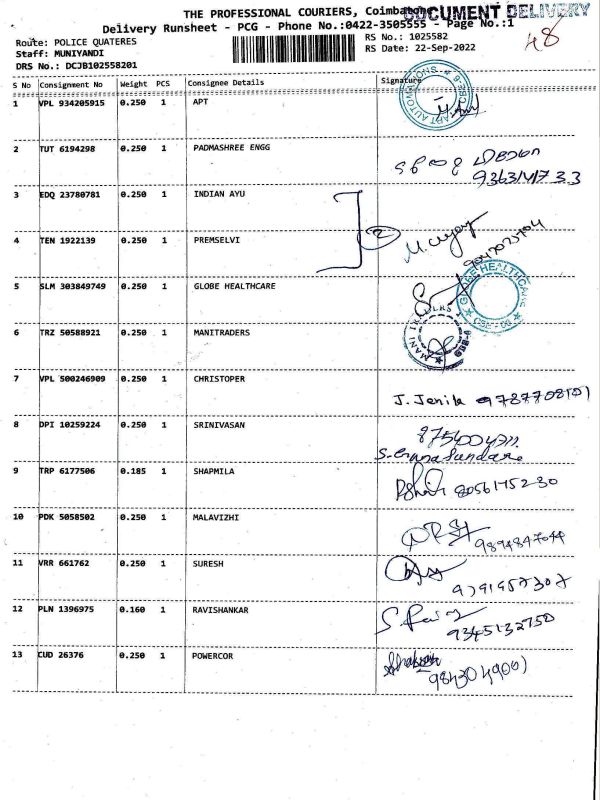 THE PROFESSIONAL COURIERS, Coimbatore
DOCUMENT DELIVERY
Delivery Runsheet - PCG - Phone No.:0422-3505555 - Page No.:1
48
Route: POLICE QUATERES
RS No.: 1025582
Staff: MUNIYANDI
RS Date: 22-Sep-2022
DRS No.: DCJB102558201
S No Consignment No Weight PCS Consignee Details Signature
1 VPL 934205915 0.250 1 APT
2 TUT 6194298 0.250 1 PADMASHREE ENGG
3 EDQ 23780781 0.250 1 INDIAN AYU
4 TEN 1922139 0.250 1 PREMSELVI
2
5 SLM 303849749 0.250 1 GLOBE HEALTHCARE
GLOBE HEALTHCARE
6 TRZ 50588921 0.250 1 MANITRADERS
7 VPL 500246909 0.250 1 CHRISTOPER
J. Jenila
8 DPI 10259224 0.250 1 SRINIVASAN
9 TRP 6177506 0.185 1 SHAPMILA
8056175230
10 PDK 5058502 0.250 1 MALAVIZHI
9894847044
11 VRR 661762 0.250 1 SURESH
9791957307
12 PLN 1396975 0.160 1 RAVISHANKAR
9345132750
13 CUD 26376 0.250 1 POWERCOR